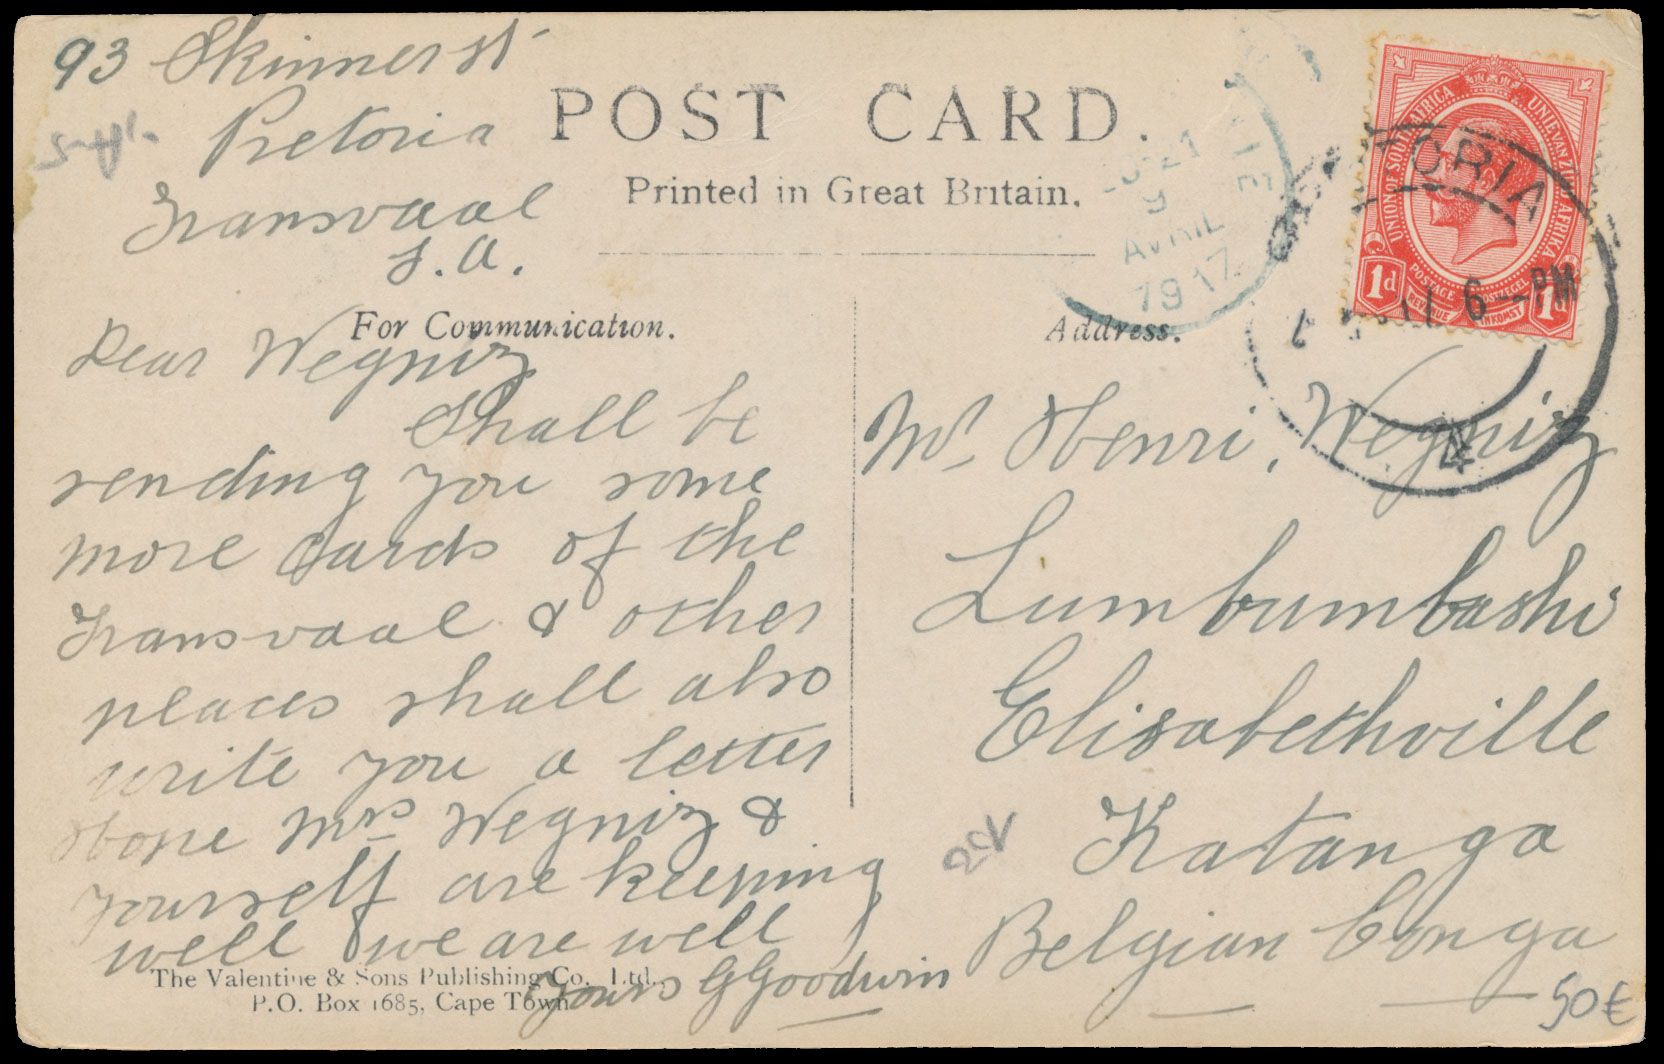 93 Skinner st
Pretoria
Transvaal
S.A.
POST CARD.
Printed in Great Britain.
9
AVRIL
1917
UNION OF SOUTH AFRICA
UNIE VAN ZUID AFRIKA
POSTAGE
POSTZEGEL
REVENUE
INKOMST
1d
1d
6 - PM
4
For Communication.
Address.
Dear Wegniz
Shall be
sending you some
more cards of the
Transvaal & other
places shall also
write you a letter
Hope Mrs Wegniz &
yourself are keeping
well & we are well
Yours G Goodwin
The Valentine & Sons Publishing Co., Ltd.,
P.O. Box 1685, Cape Town
Mr Henri, Wegniz
Lumbumbashi
Elisabethville
Katanga
Belgian Conga
50€